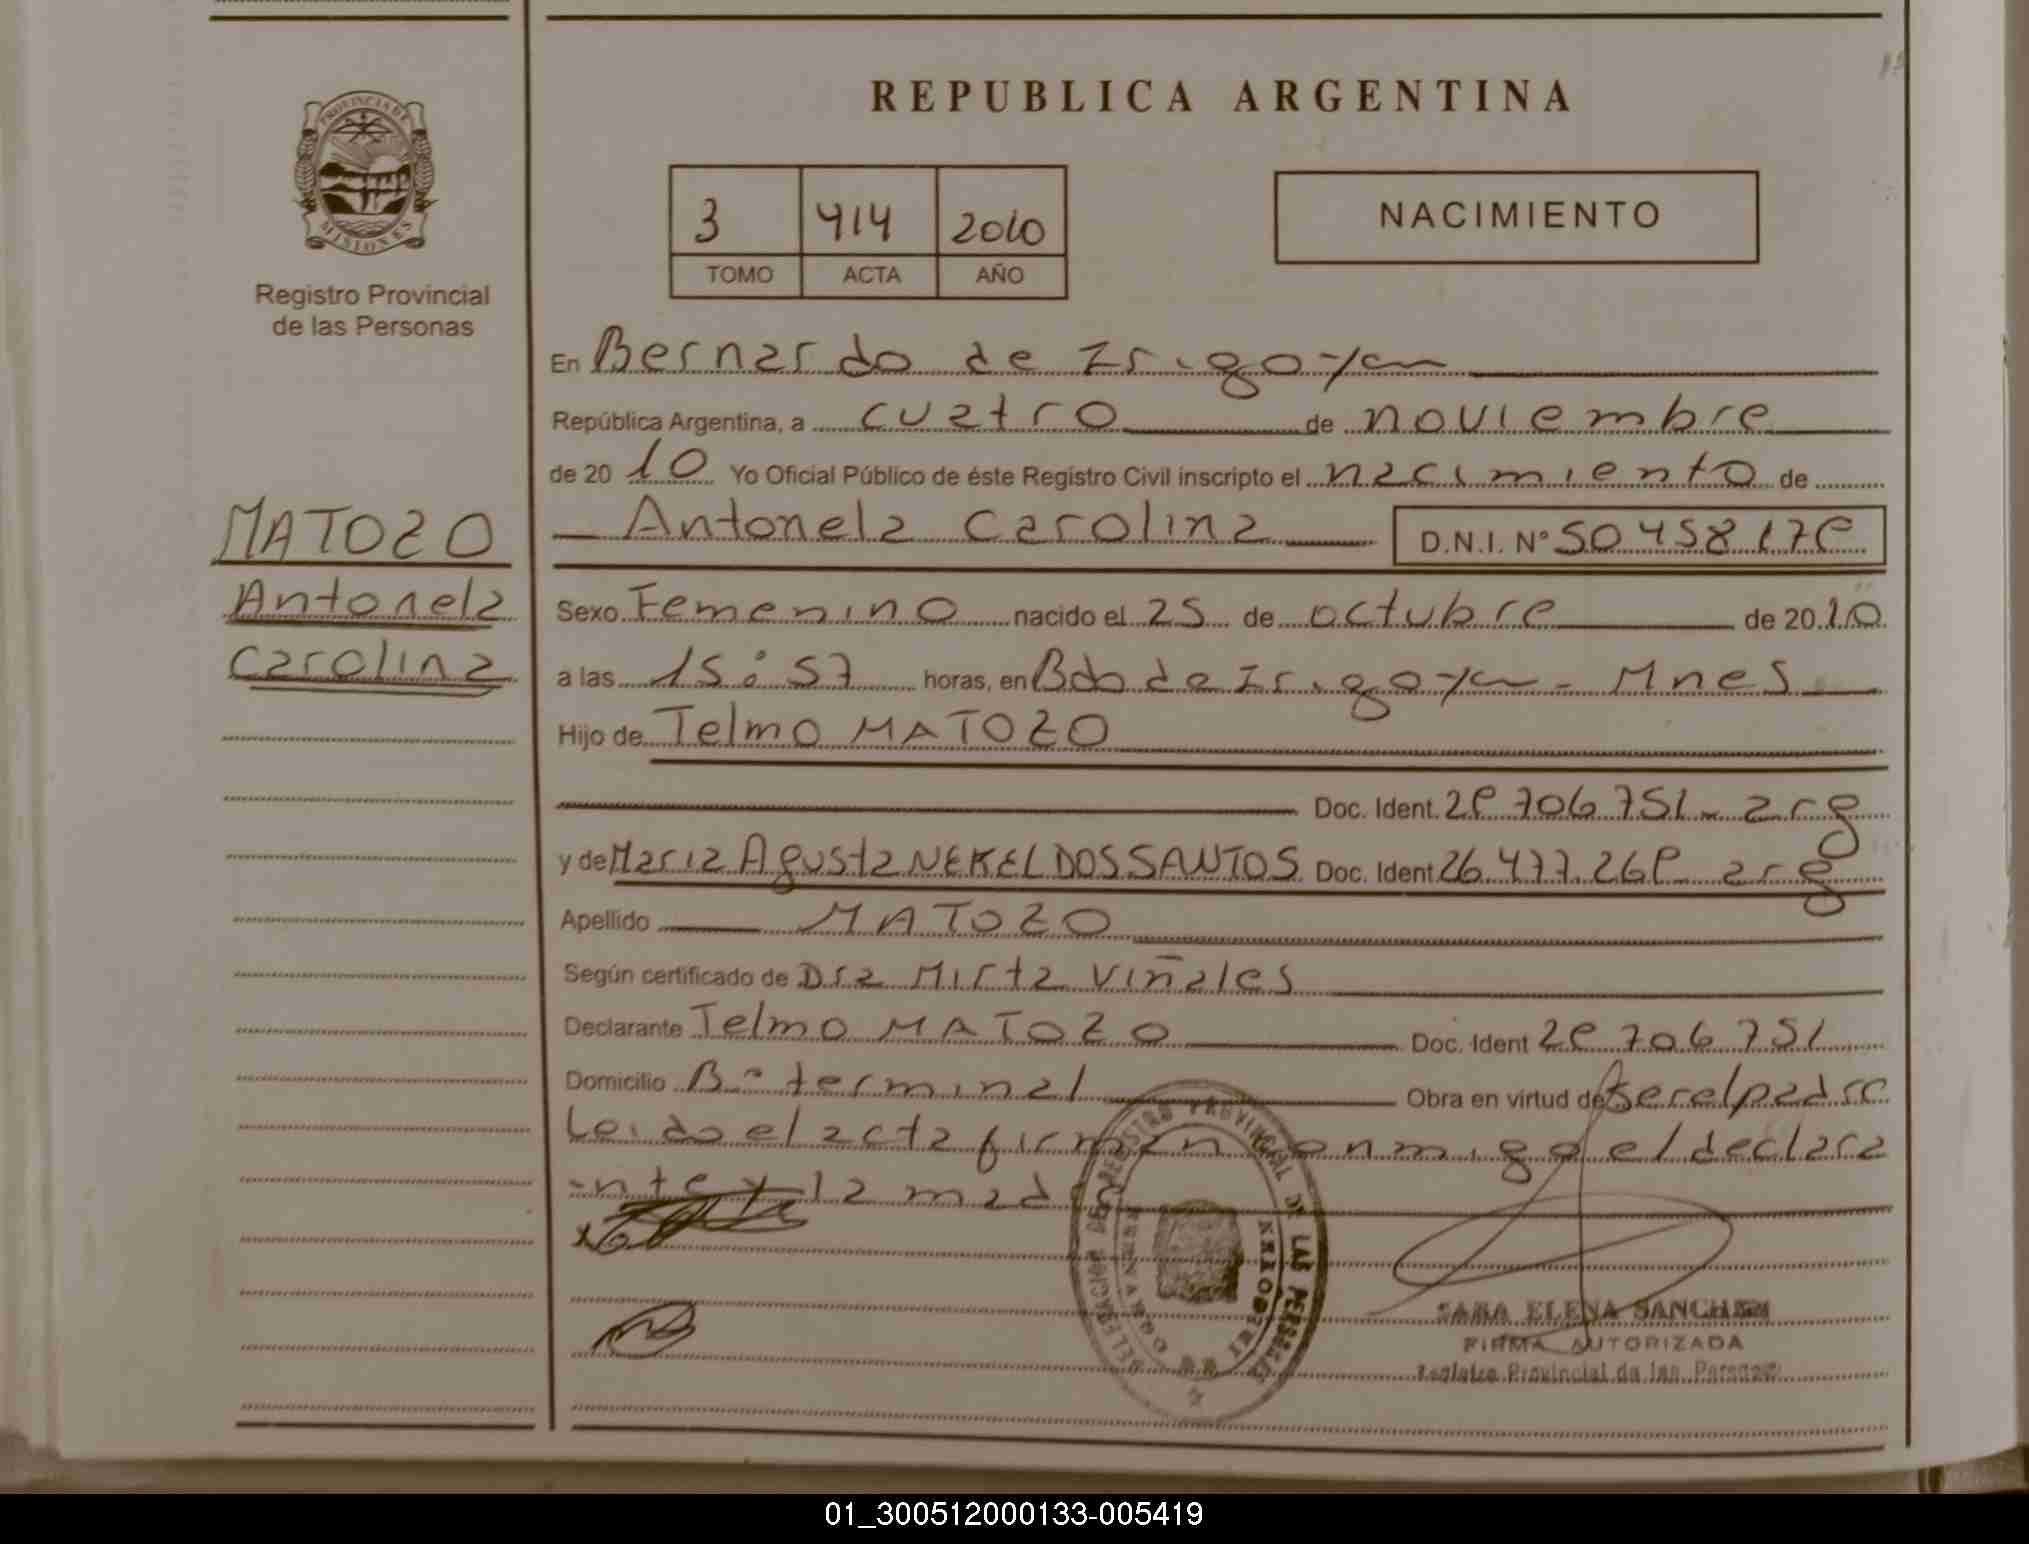 REPUBLICA ARGENTINA
PROVINCIA DE
MISIONES
Registro Provincial
de las Personas
3 414 2010
TOMO ACTA AÑO
NACIMIENTO
En Bernardo de Irigoyen
República Argentina, a cuatro de noviembre
de 2010 Yo Oficial Público de éste Registro Civil inscripto el nacimiento de
Antonela Carolina D.N.I. Nº 50 458 179
MATOZO
Antonela
Carolina
Sexo Femenino nacido el 25 de octubre de 2010
a las 15:57 horas, en Bdo de Irigoyen - Mnes
Hijo de Telmo MATOZO
Doc. Ident. 29 706 751 - arg
y de Maria Agusta NEKEL DOS SANTOS Doc. Ident 26.477.269 arg
Apellido MATOZO
Según certificado de Dra Mirta Viñales
Declarante Telmo MATOZO Doc. Ident 29 706 751
Domicilio Bº terminal Obra en virtud de ser el padre
Leido el acta firman conmigo el declara
-nte y la madre
REGISTRO PROVINCIAL DE LAS PERSONAS
SARA ELENA SANCHEZ
FIRMA AUTORIZADA
Registro Provincial de las Personas
01_300512000133-005419